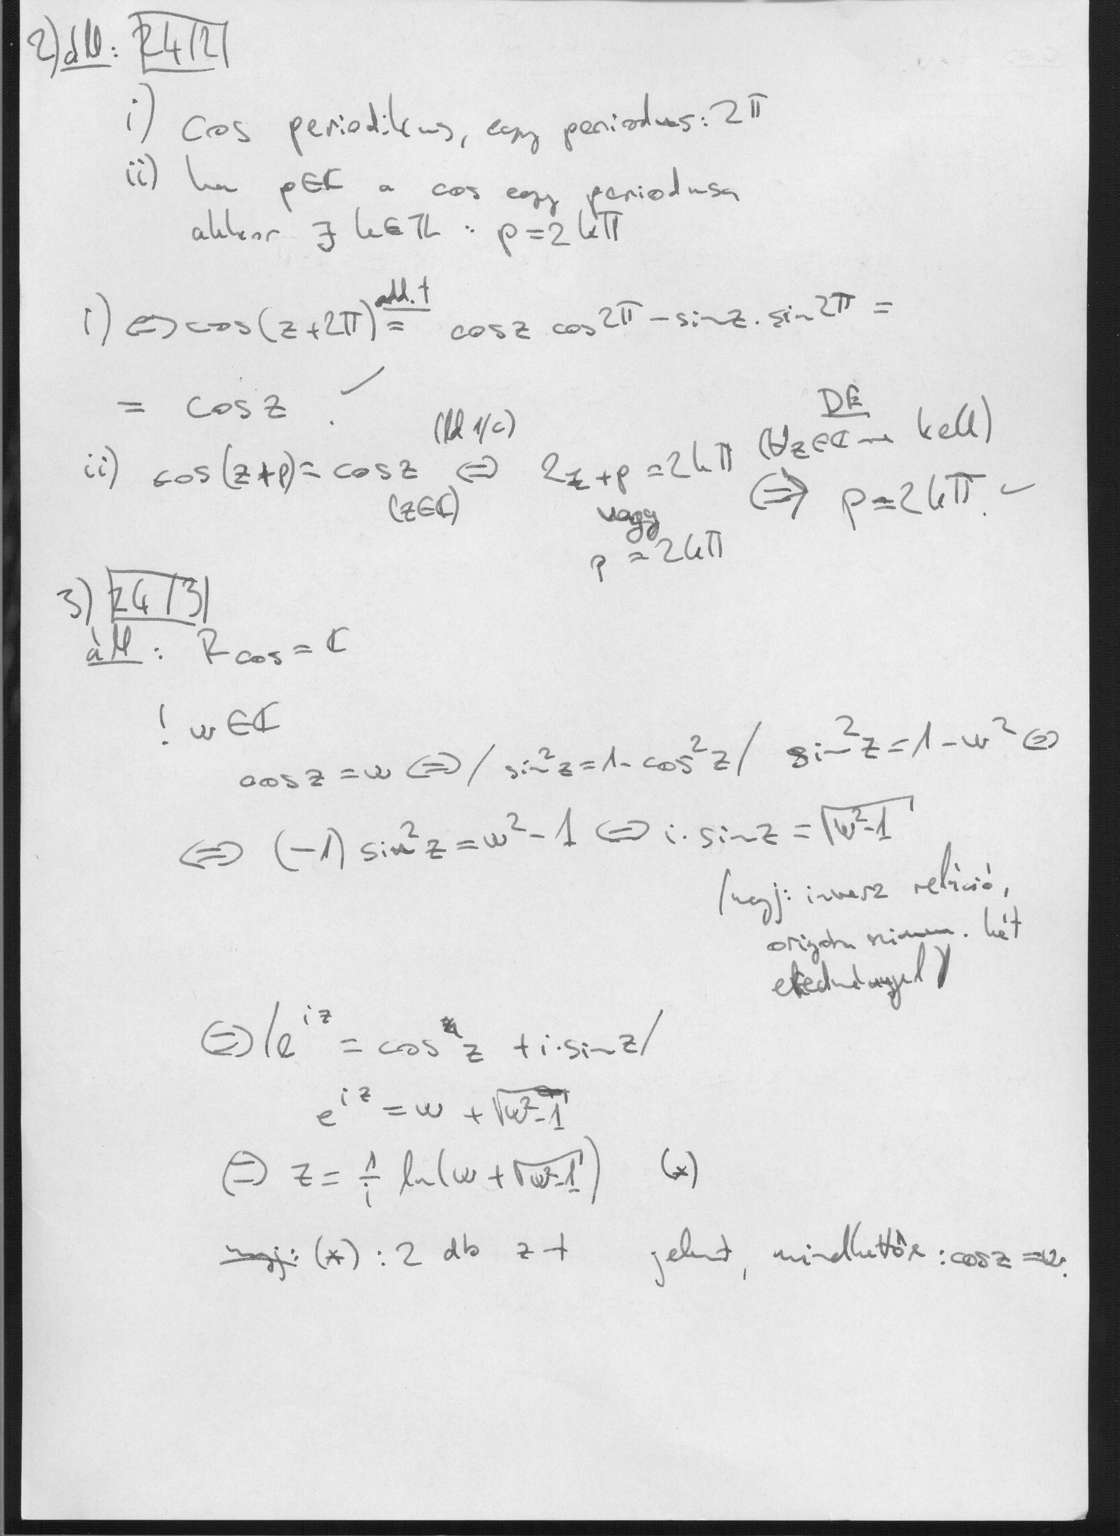 2) áll: 24/2/
i) cos periodikus, egy periodus: 2π
ii) ha p∈ℂ a cos egy periodusa
akkor ∃ k∈ℤ : p=2kπ
i) ⇔ cos(z+2π) =(add. t) cosz cos2π – sinz · sin2π =
= cosz. ✓
ii) cos(z+p) = cosz (z∈ℂ) ⇔ (ld 1/c) 2z+p=2kπ vagy p=2kπ ⇔ DE (∀z∈ℂ-re kell) p=2kπ. ✓
3) 24/3/
áll: R cos = ℂ
! w∈ℂ
cosz = w ⇔ / sin²z=1-cos²z / sin²z=1-w² ⇔
⇔ (-1) sin²z = w²-1 ⇔ i·sinz = √w²-1
/megj: inverz reláció,
origóra szimm. két
eredménnyel /
⇔ / e^iz = cos z + i·sinz /
e^iz = w + √w²-1
⇔ z = 1/i ln(w + √w²-1) (*)
(*) : 2 db z-t jelent, mindkettőre : cosz = w.